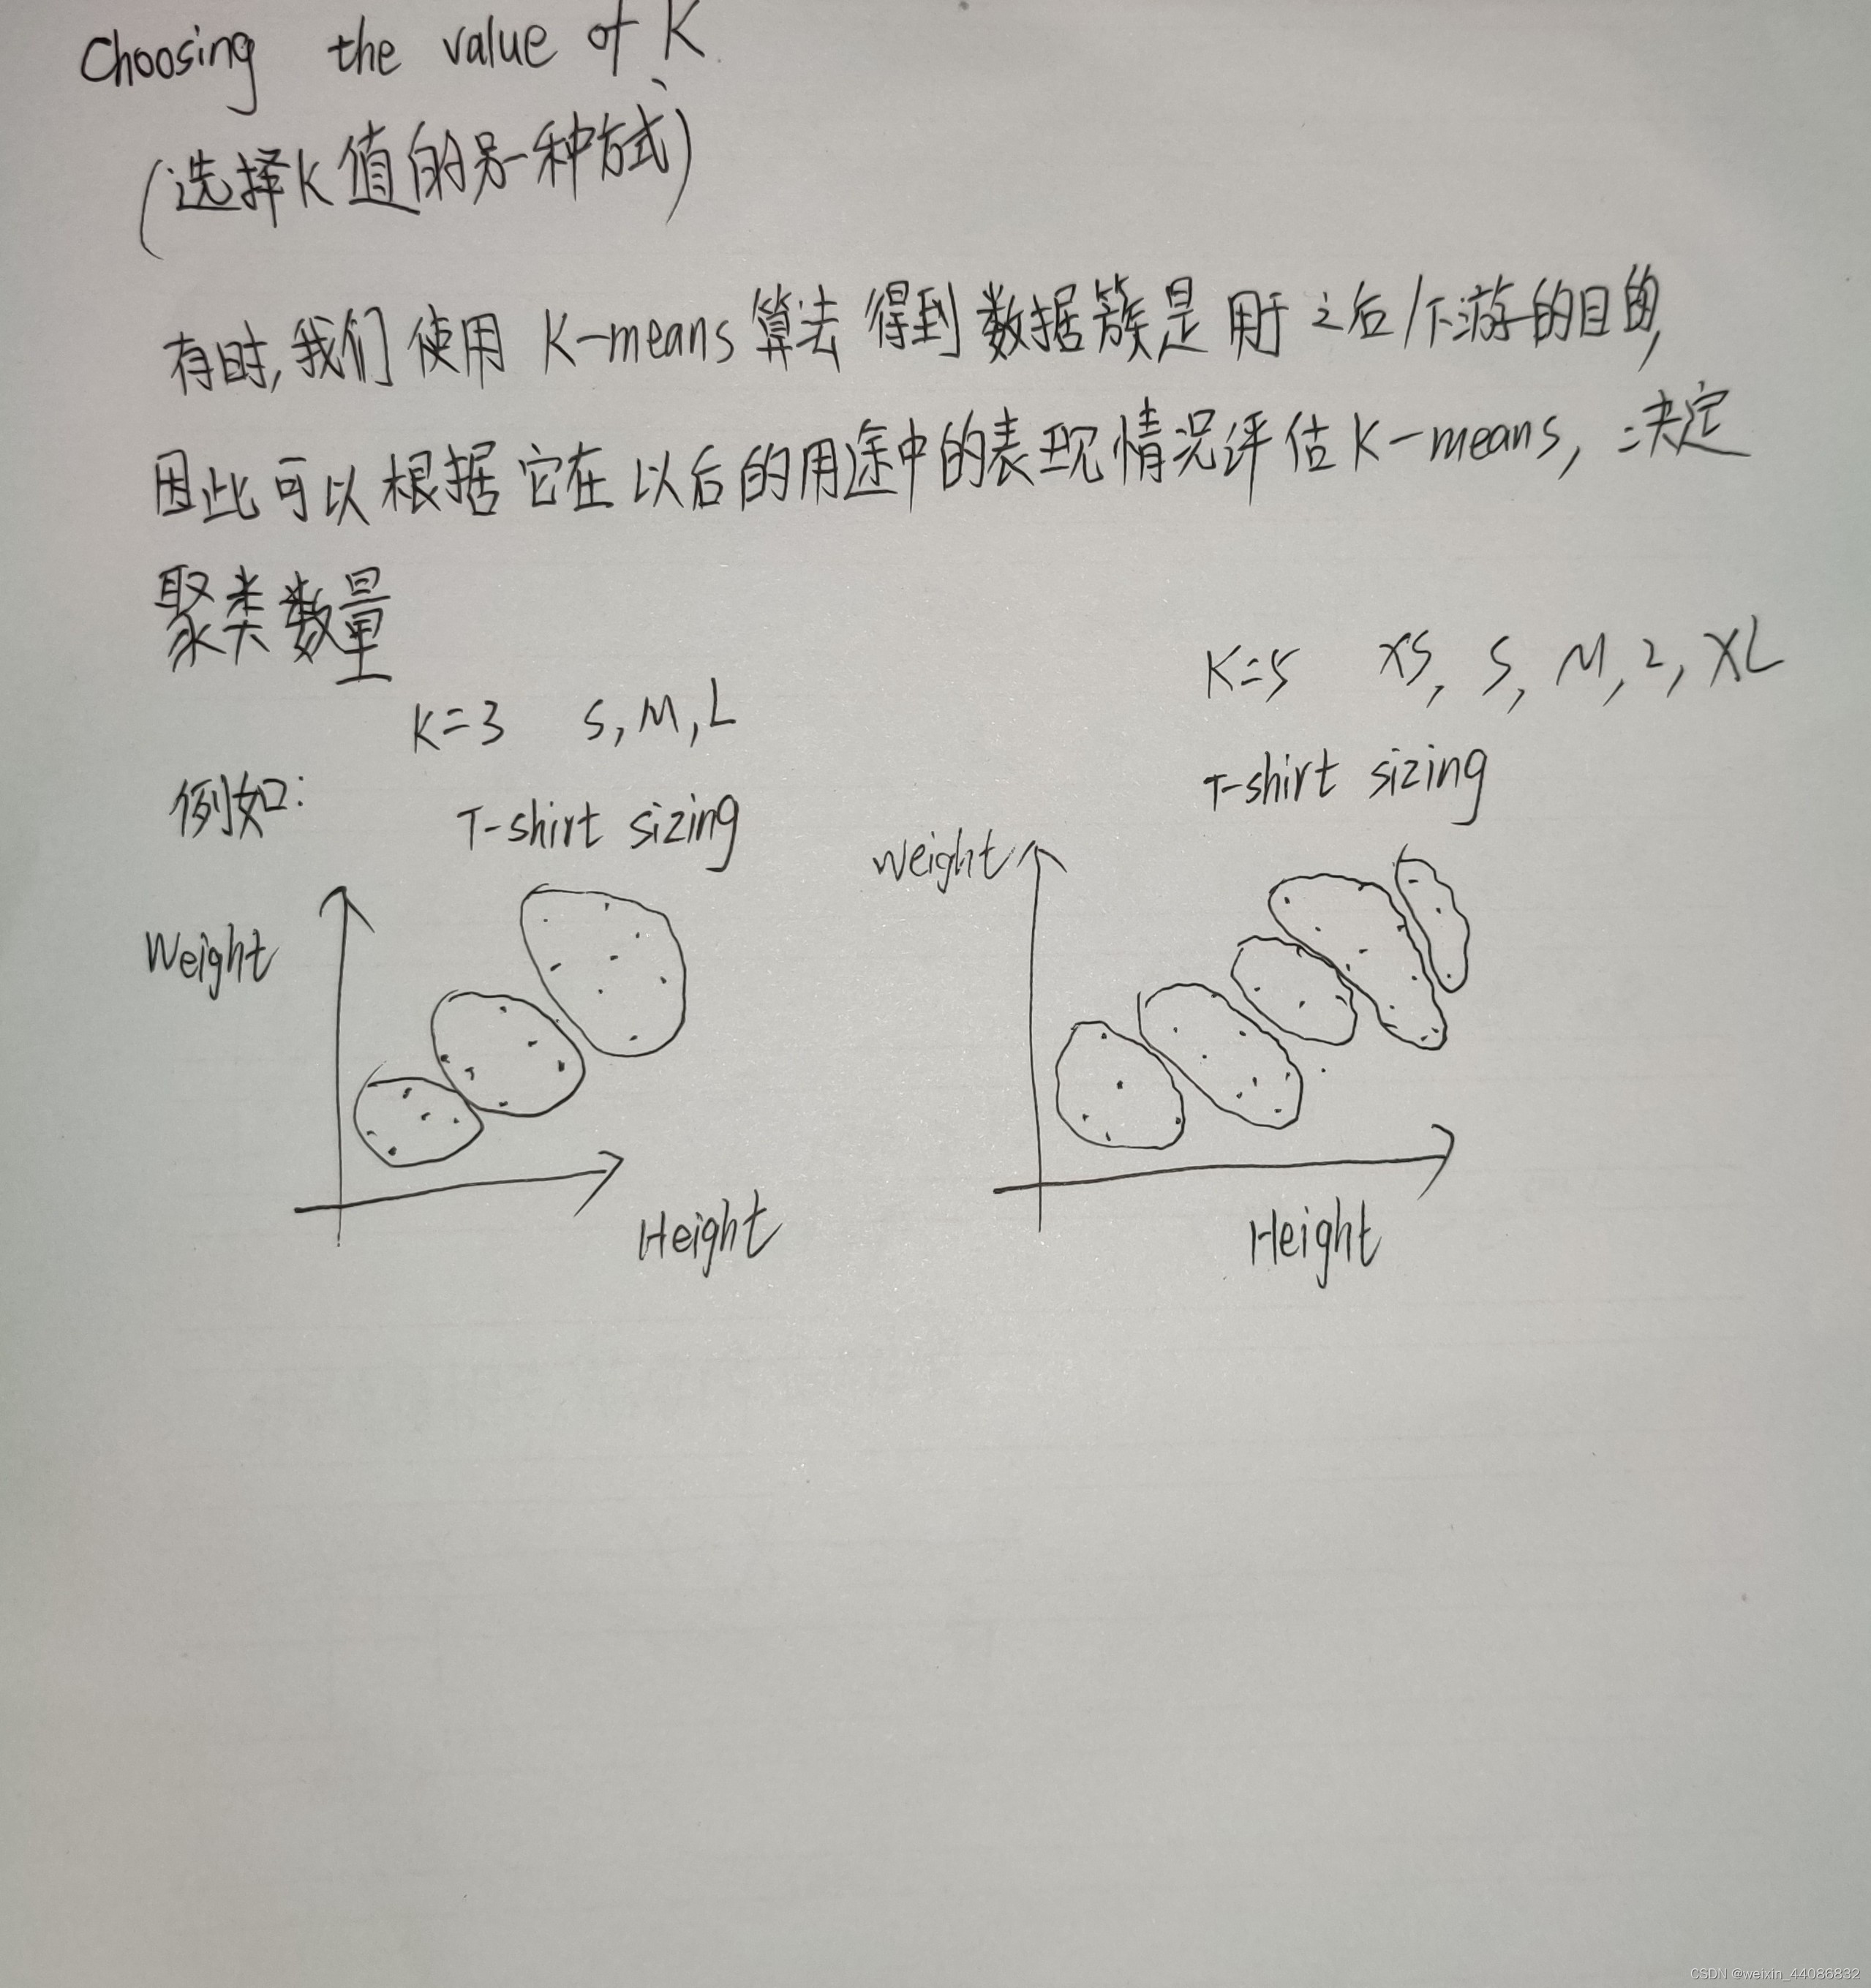 Choosing the value of K
(选择K值的另一种方式)
有时,我们使用 K-means算法得到数据簇是用于之后/下游的目的,
因此可以根据它在以后的用途中的表现情况评估K-means, 决定
聚类数量
K=3 S, M, L
K=5 XS, S, M, L, XL
例如:
T-shirt sizing
T-shirt sizing
Weight
Weight
Height
Height
CSDN @weixin_44086832